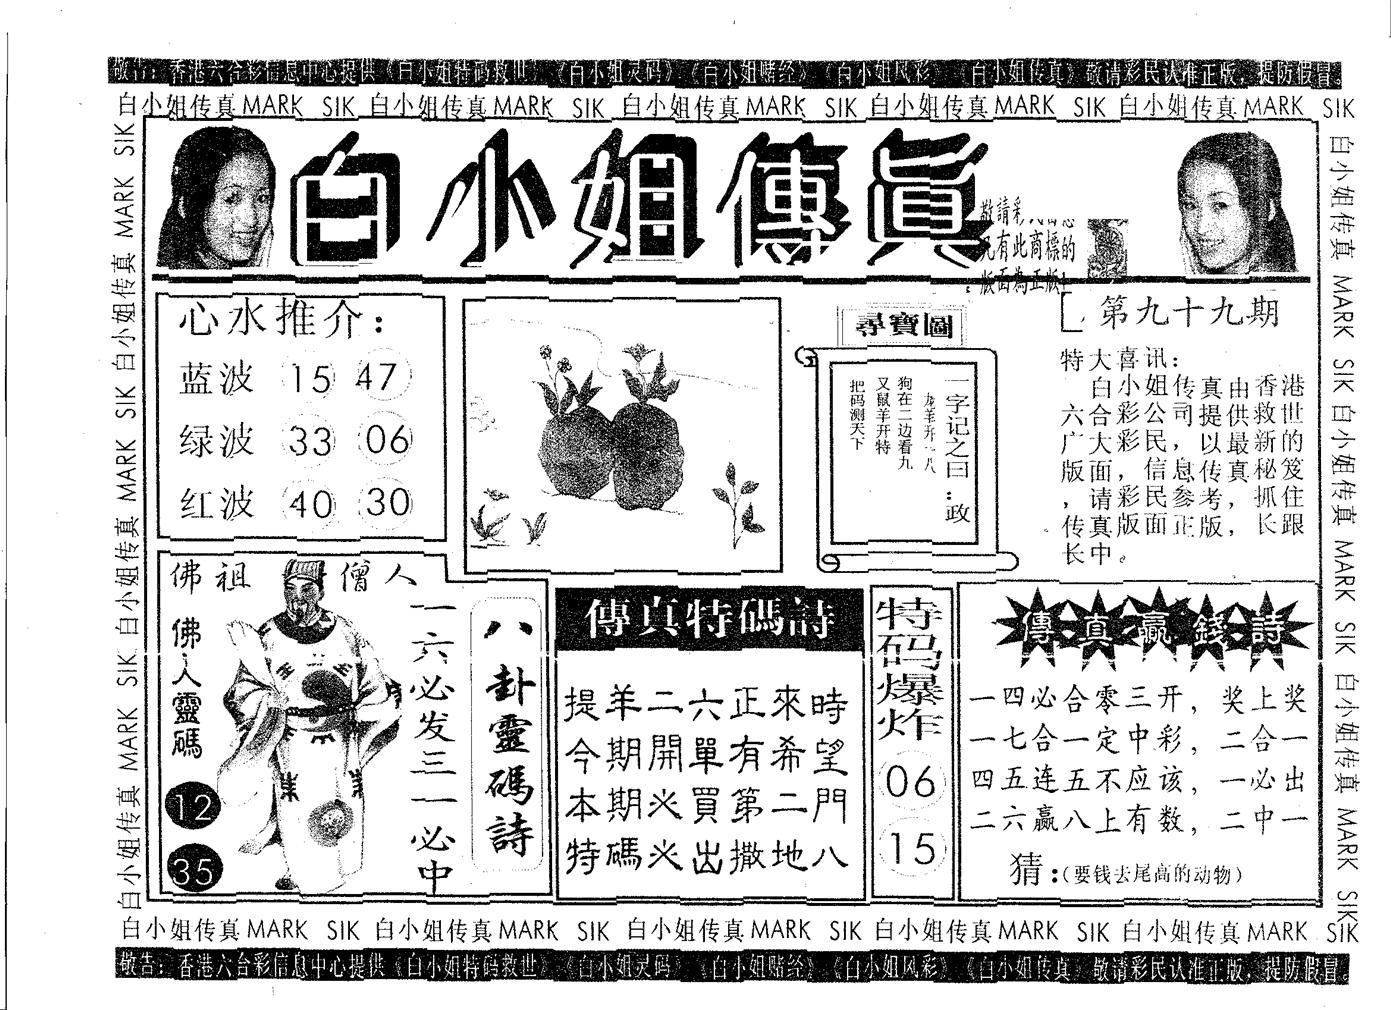 敬告：香港六合彩信息中心提供《白小姐特码救世》《白小姐灵码》《白小姐赌经》《白小姐风彩》《白小姐传真》敬请彩民认准正版，提防假冒。
白小姐传真 MARK SIK 白小姐传真 MARK SIK 白小姐传真 MARK SIK 白小姐传真 MARK SIK 白小姐传真 MARK SIK
白小姐傳真
敬請彩
有此商標的
版面為正版
第九十九期
心水推介：
蓝波 15 47
绿波 33 06
红波 40 30
尋寶圖
一字记之曰：政
龙羊开一八
狗在二边看九
又鼠羊开特
把码测天下
特大喜讯：
白小姐传真由香港
六合彩公司提供救世
广大彩民，以最新的
版面，信息传真秘笈
，请彩民参考，抓住
传真版面正版，长跟
长中。
佛祖 僧人
佛人靈碼
12
35
一六必发三一必中
八卦靈碼詩
傳真特碼詩
提羊二六正來時
今期開單有希望
本期必買第二門
特碼必出撒地八
特码爆炸
06
15
傳真贏錢詩
一四必合零三开，奖上奖
一七合一定中彩，二合一
四五连五不应该，一必出
二六赢八上有数，二中一
猜：(要钱去尾高的动物)
白小姐传真 MARK SIK 白小姐传真 MARK SIK 白小姐传真 MARK SIK 白小姐传真 MARK SIK
白小姐传真 MARK SIK 白小姐传真 MARK SIK 白小姐传真 MARK SIK
白小姐传真 MARK SIK 白小姐传真 MARK SIK 白小姐传真 MARK SIK 白小姐传真 MARK SIK 白小姐传真 MARK SIK
敬告：香港六合彩信息中心提供《白小姐特码救世》《白小姐灵码》《白小姐赌经》《白小姐风彩》《白小姐传真》敬请彩民认准正版，提防假冒。